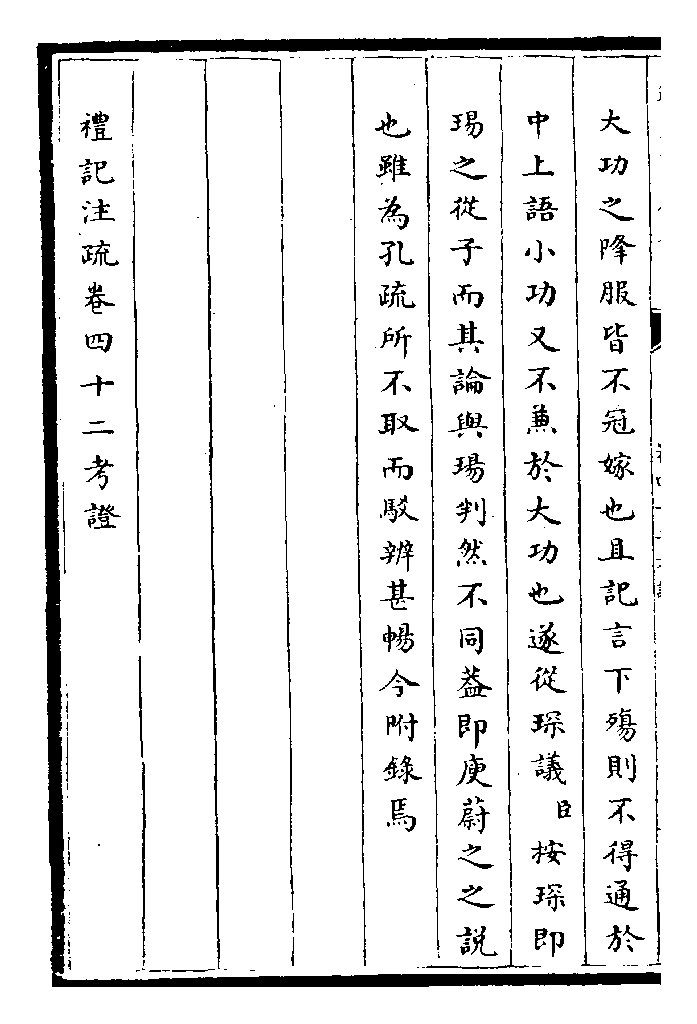 大功之降服皆不冠嫁也且記言下殤則不得通於
中上語小功又不蒹於大功也遂從琛議臣按琛即
瑒之從子而其論與瑒判然不同葢即庾蔚之之說
也雖為孔疏所不取而駁辨甚暢今附錄焉
禮記注疏卷四十二考證